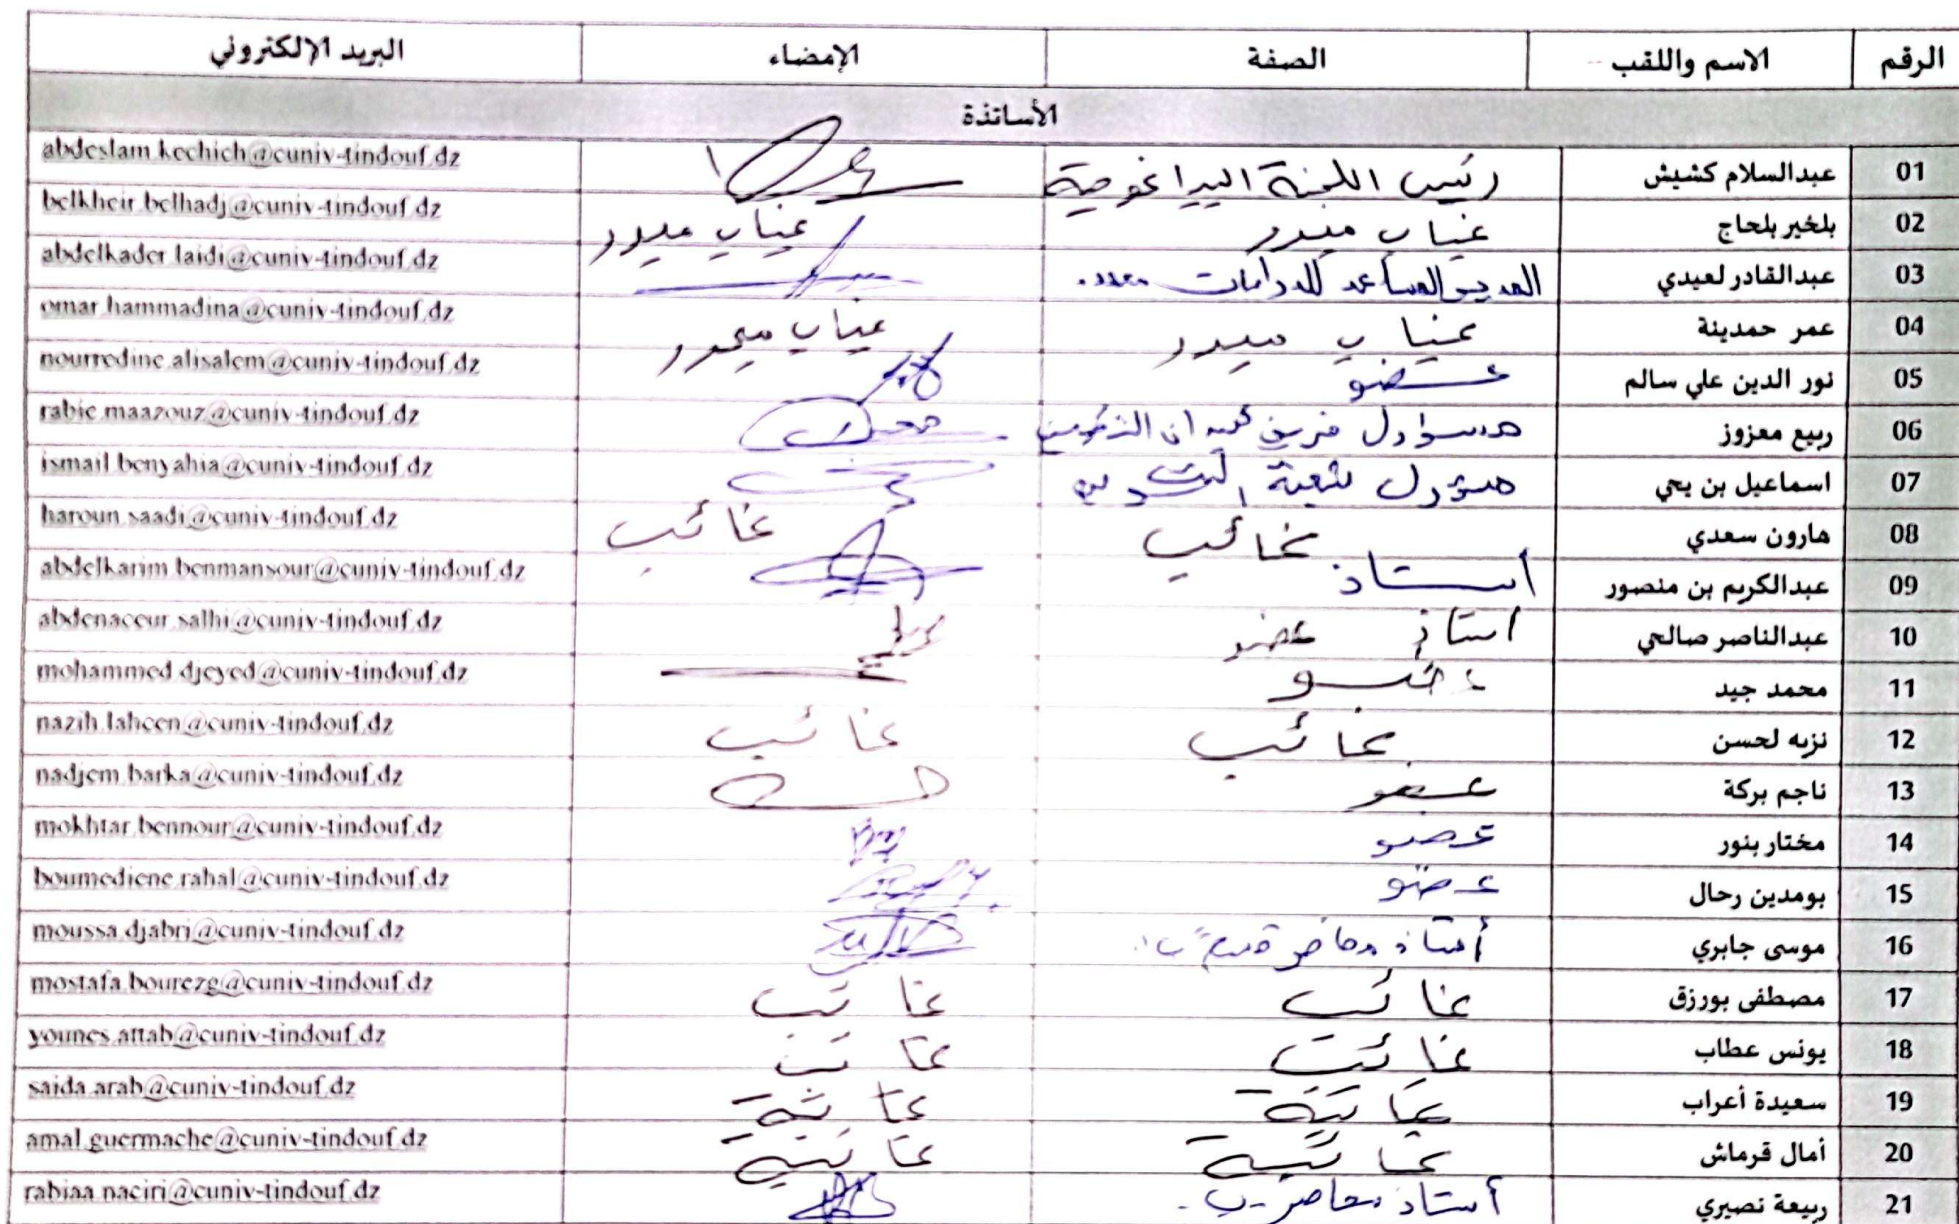 الرقم الاسم واللقب الصفة الإمضاء البريد الإلكتروني
الأساتذة
01 عبدالسلام كشيش رئيس اللجنة البيداغوجية abdeslam.kechich@cuniv-tindouf.dz
02 بلخير بلحاج غياب مبرر غياب مبرر belkheir.belhadj@cuniv-tindouf.dz
03 عبدالقادر لعيدي المدير المساعد للدراسات abdelkader.laidi@cuniv-tindouf.dz
04 عمر حمدينة غياب مبرر غياب مبرر omar.hammadina@cuniv-tindouf.dz
05 نور الدين علي سالم عضو nourredine.alisalem@cuniv-tindouf.dz
06 ربيع معزوز مسؤول فريق ميدان التكوين rabie.maazouz@cuniv-tindouf.dz
07 اسماعيل بن يحي مسؤول شعبة ismail.benyahia@cuniv-tindouf.dz
08 هارون سعدي غائب غائب haroun.saadi@cuniv-tindouf.dz
09 عبدالكريم بن منصور استاذ abdelkarim.benmansour@cuniv-tindouf.dz
10 عبدالناصر صالحي استاذ عضو abdenaceur.salhi@cuniv-tindouf.dz
11 محمد جيد عضو mohammed.djeyed@cuniv-tindouf.dz
12 نزيه لحسن غائب غائب nazih.lahcen@cuniv-tindouf.dz
13 ناجم بركة عضو nadjem.barka@cuniv-tindouf.dz
14 مختار بنور عضو mokhtar.bennour@cuniv-tindouf.dz
15 بومدين رحال عضو boumediene.rahal@cuniv-tindouf.dz
16 موسى جابري أستاذ محاضر قسم ب moussa.djabri@cuniv-tindouf.dz
17 مصطفى بورزق غائب غائب mostafa.bourezg@cuniv-tindouf.dz
18 يونس عطاب غائب غائب younes.attab@cuniv-tindouf.dz
19 سعيدة أعراب غائبة غائبة saida.arab@cuniv-tindouf.dz
20 أمال قرماش غائبة غائبة amal.guermache@cuniv-tindouf.dz
21 ربيعة نصيري أستاذ محاضر -ب- rabiaa.naciri@cuniv-tindouf.dz